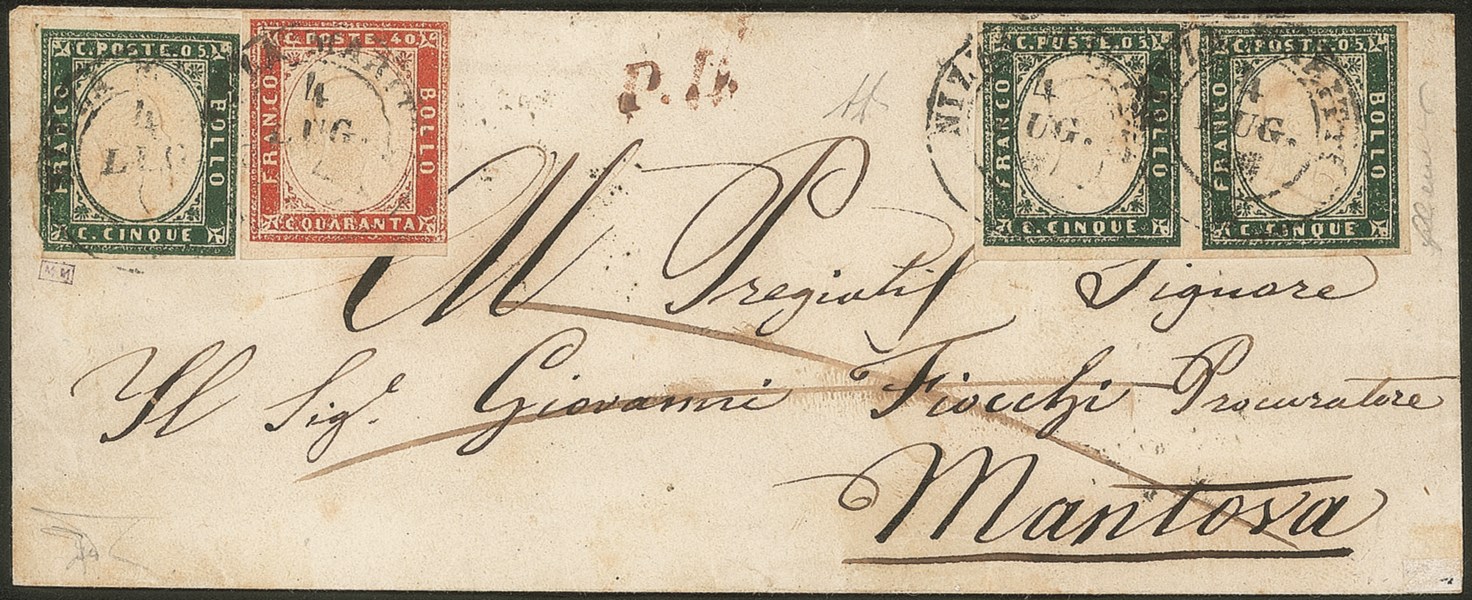 C. POSTE. 05
FRANCO
BOLLO
C. CINQUE
C. POSTE. 40
FRANCO
BOLLO
C. QUARANTA
4
LUG
4
LUG.
P. D.
C. POSTE. 05
FRANCO
BOLLO
C. CINQUE
C. POSTE. 05
FRANCO
BOLLO
C. CINQUE
NIZZA
4
UG.
4
LUG.
Al Pregiatis Signore
Il Sigr. Giovanni Fiocchi Procuratore
Mantova